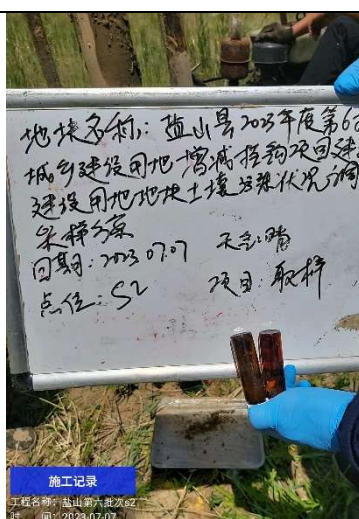 地块名称：盐山县2023年度第6
城乡建设用地增减挂钩项目建
建设用地地块土壤污染状况调
采样方案
日期：2023 07.07 天气：晴
点位：S2 项目：取样
施工记录
工程名称：盐山第六批次s2
时 间：2023-07-07